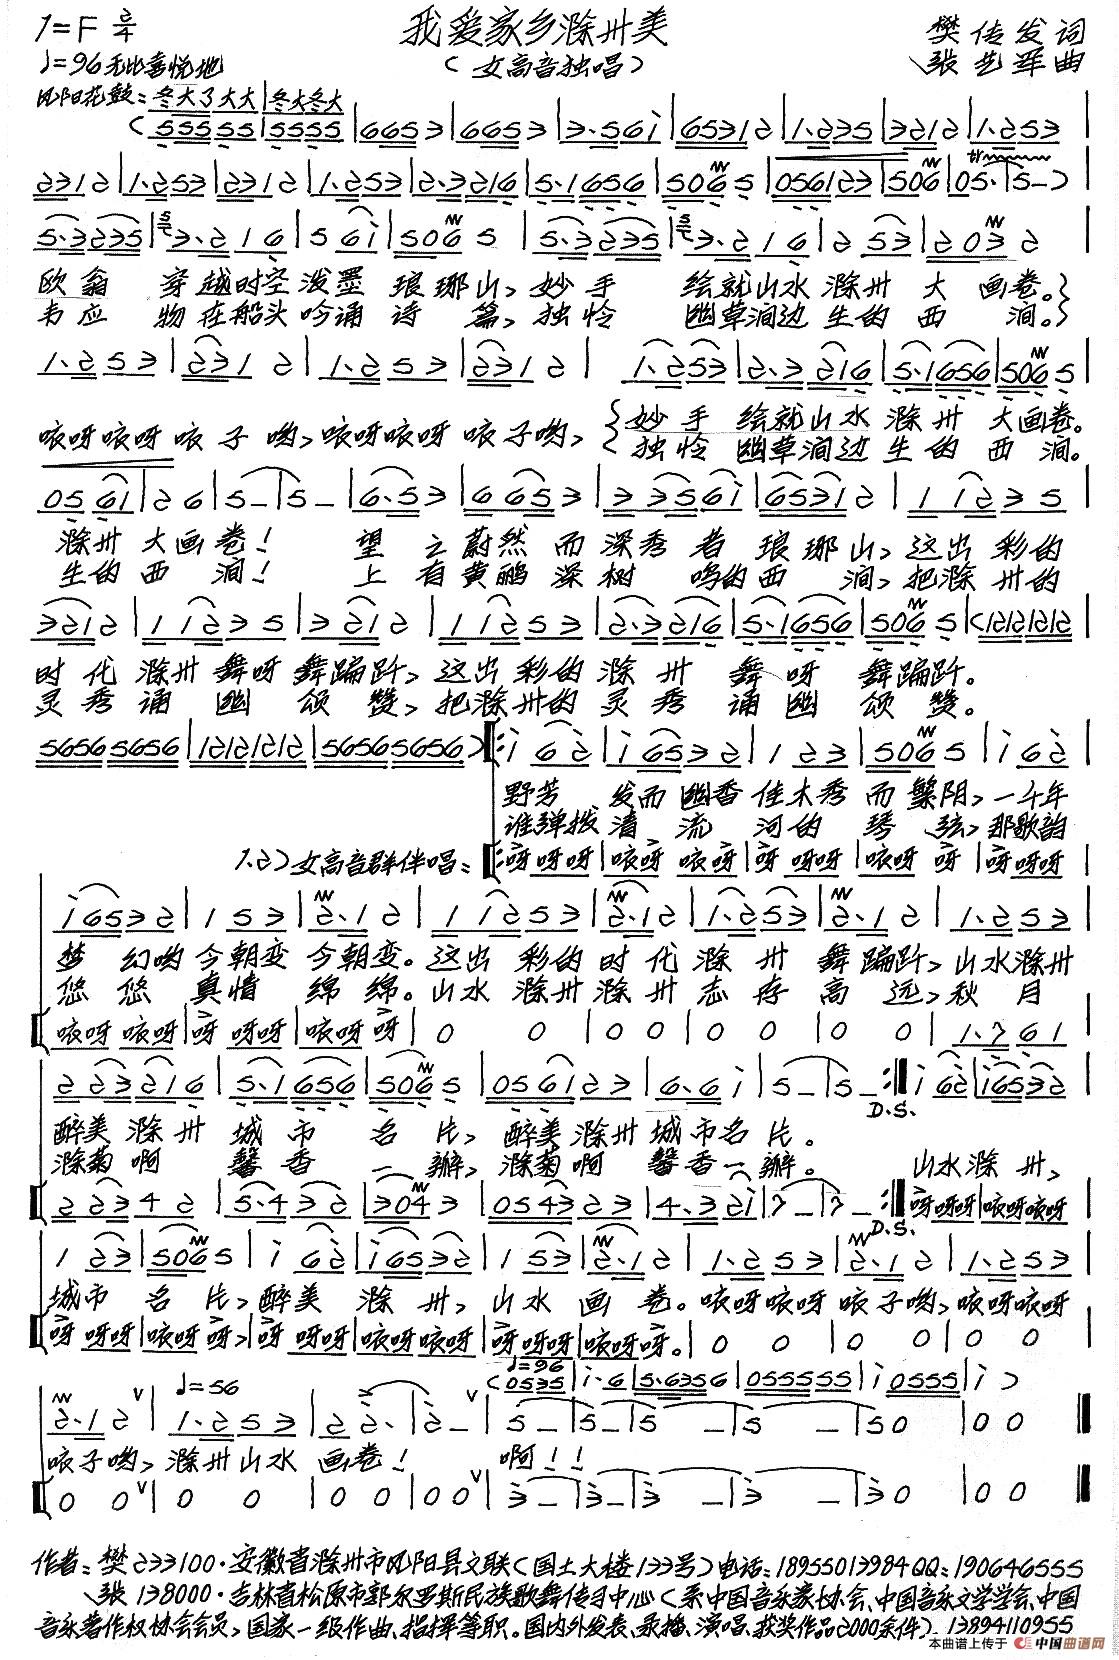 我爱家乡滁州美
1=F 2/4
樊传发词
♩=96无比喜悦地
(女高音独唱)
张艺军曲
凤阳花鼓:冬大了大大|冬大冬大
(55555|5555|6653|6653|3·561̇|65312|1·235|3212|1·253|
2312|1·253|2312|1·253|2·3216|5·1656|5065|056123|506|05·|5-)
5·3235|3·216|561̇|5065|5·3235|3·216|253|2032|
欧翁 穿越时空泼墨琅琊山,妙手 绘就山水滁州大画卷。
韦应 物在船头吟诵诗篇,独怜 幽草涧边生的西涧。
1·253|2312|1·253|2312|1·253|2·3216|5·1656|5065|
咴呀咴呀咴子哟,咴呀咴呀咴子哟,妙手绘就山水滁州大画卷。
独怜幽草涧边生的西涧。
0561|26|5-|5-|6·53|6653|33561̇|65312|11253|
滁州大画卷! 望之蔚然而深秀者琅琊山,这出彩的
生的西涧! 上有黄鹂深树鸣的西涧,把滁州的
3212|11235|3212|11253|2·3216|5·1656|5065|(12121212|
时代滁州舞呀舞蹁跹,这出彩的滁州舞呀舞蹁跹。
灵秀诵幽颂赞,把滁州的灵秀诵幽颂赞。
56565656|12121212|56565656)|:1̇62̇|1̇6532|1235|5065|1̇62̇|
野芳发而幽香佳木秀而繁阴,一千年
谁弹拨清流河的琴弦,那歌韵
1.2)女高音群伴唱:|:呀呀呀|咴呀咴呀|呀呀呀|咴呀呀|呀呀呀|
1̇6532|153|2·12|11253|2·12|1·253|2·12|1·253|
梦幻哟今朝变今朝变。这出彩的时代滁州舞蹁跹,山水滁州
悠悠真情绵绵。山水滁州滁州志存高远,秋月
咴呀咴呀|呀呀呀|咴呀呀|0 0|0 0|0 0|0 0|1·761|
223216|5·1656|5065|056123|6·61̇|5-|5-:|1̇62̇|1̇6532|
D.S.
醉美滁州城市名片,醉美滁州城市名片。
滁菊啊馨香一瓣,滁菊啊馨香一瓣。 山水滁州,
22342|5·432|3043|054323|4·321̇|7-|7-:|呀呀呀|咴呀咴呀
D.S.
123|5065|1̇62̇|1̇6532|153|2·12|1·253|2·12|1·253|
城市名片,醉美滁州,山水画卷。咴呀咴呀咴子哟,咴呀咴呀
呀呀呀|咴呀呀,|呀呀呀|咴呀咴呀|呀呀呀|咴呀呀。|0 0|0 0|0 0|
♩=96
(0535|1̇·6|5·6356|0555555|1̇0555|1̇)
♩=56
2·12|1·253|22·|2-|5-|5-|5-|5-|50|00‖
咴子哟,滁州山水画卷! 啊!!
0 0|0 0|0 0|0 0|3-|3-|3-|-|30|00‖
作者:樊233100·安徽省滁州市凤阳县文联(国土大楼133号)电话:18955013984QQ:190646555
张138000·吉林省松原市郭尔罗斯民族歌舞传习中心(系中国音乐家协会、中国音乐文学学会、中国
音乐著作权协会会员,国家一级作曲、指挥等职。国内外发表、录播、演唱、获奖作品2000余件)。13894110955
本曲谱上传于 中国曲谱网